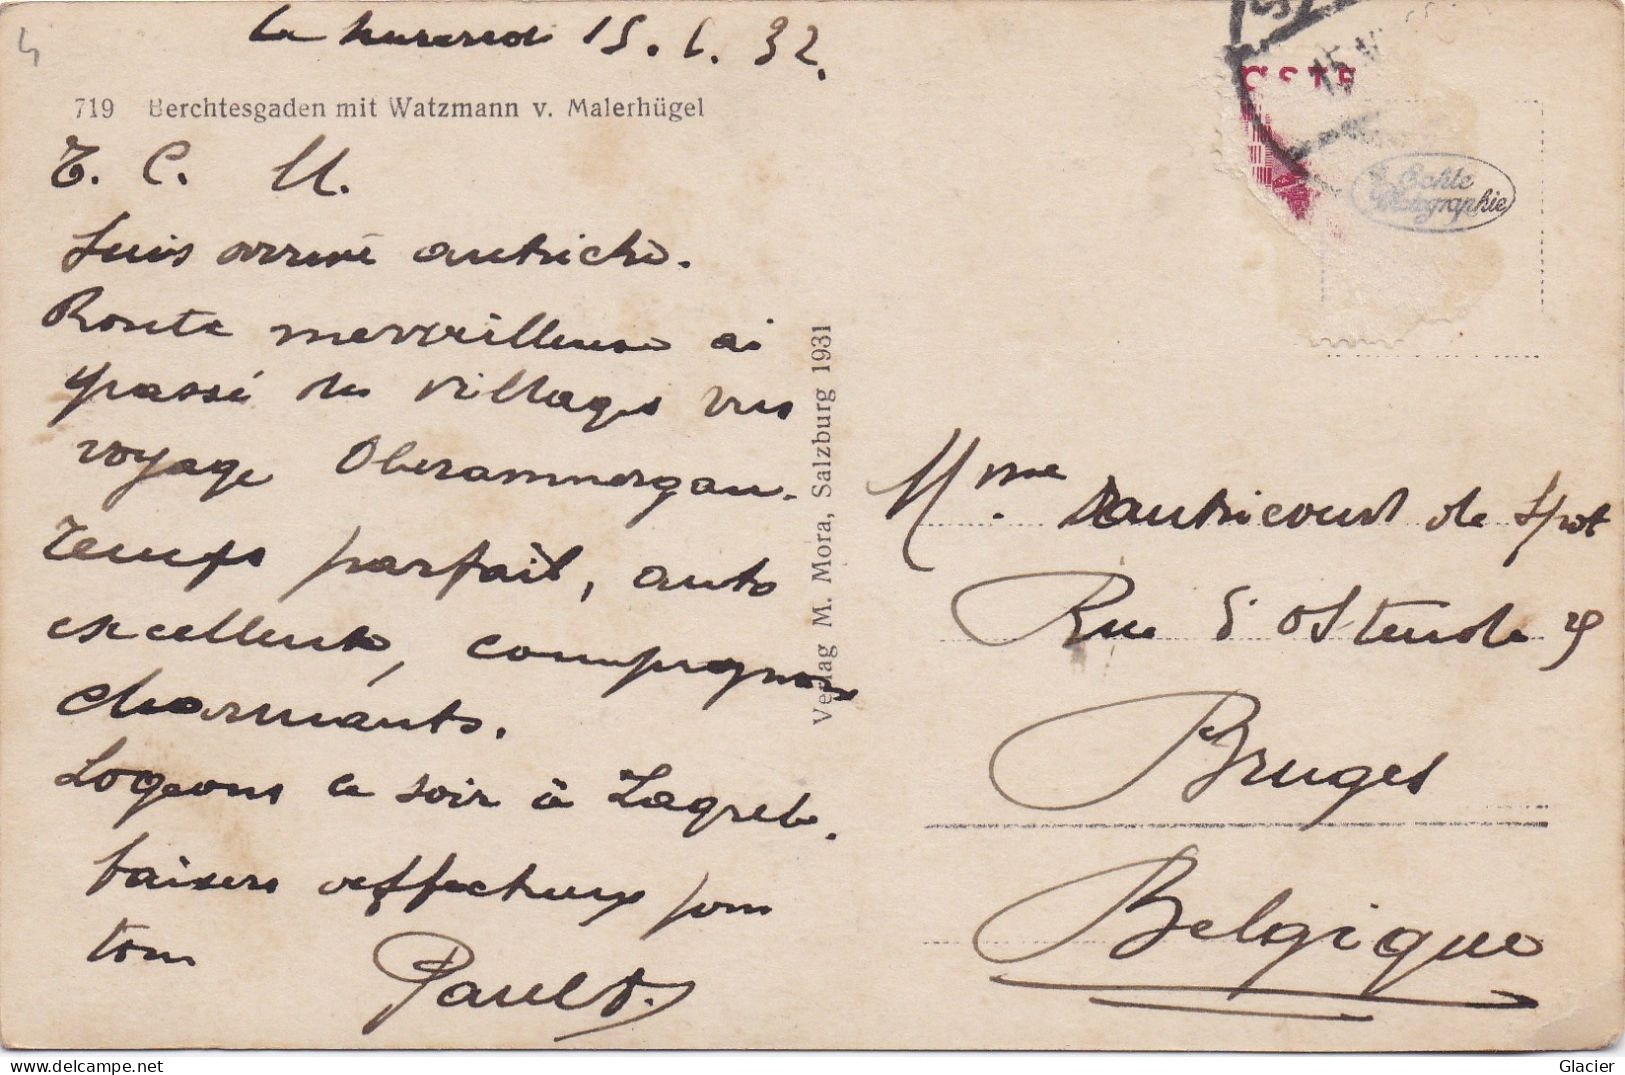 Le mercredi 15.6.32.
719 Berchtesgaden mit Watzmann v. Malerhügel
T. C. M.
Suis arrivé autriche.
Route merveilleuse ai
passé des villages vus
voyage Oberammergau.
Temps parfait, auto
excellente, compagnons
charmants.
Logeons ce soir à Zagreb.
baisers affectueux pour
tous
Paul
Verlag M. Mora, Salzburg 1931
Echte Photographie
Mme Dautricourt de Spot
Rue d'Ostende 25
Bruges
Belgique
Glacier